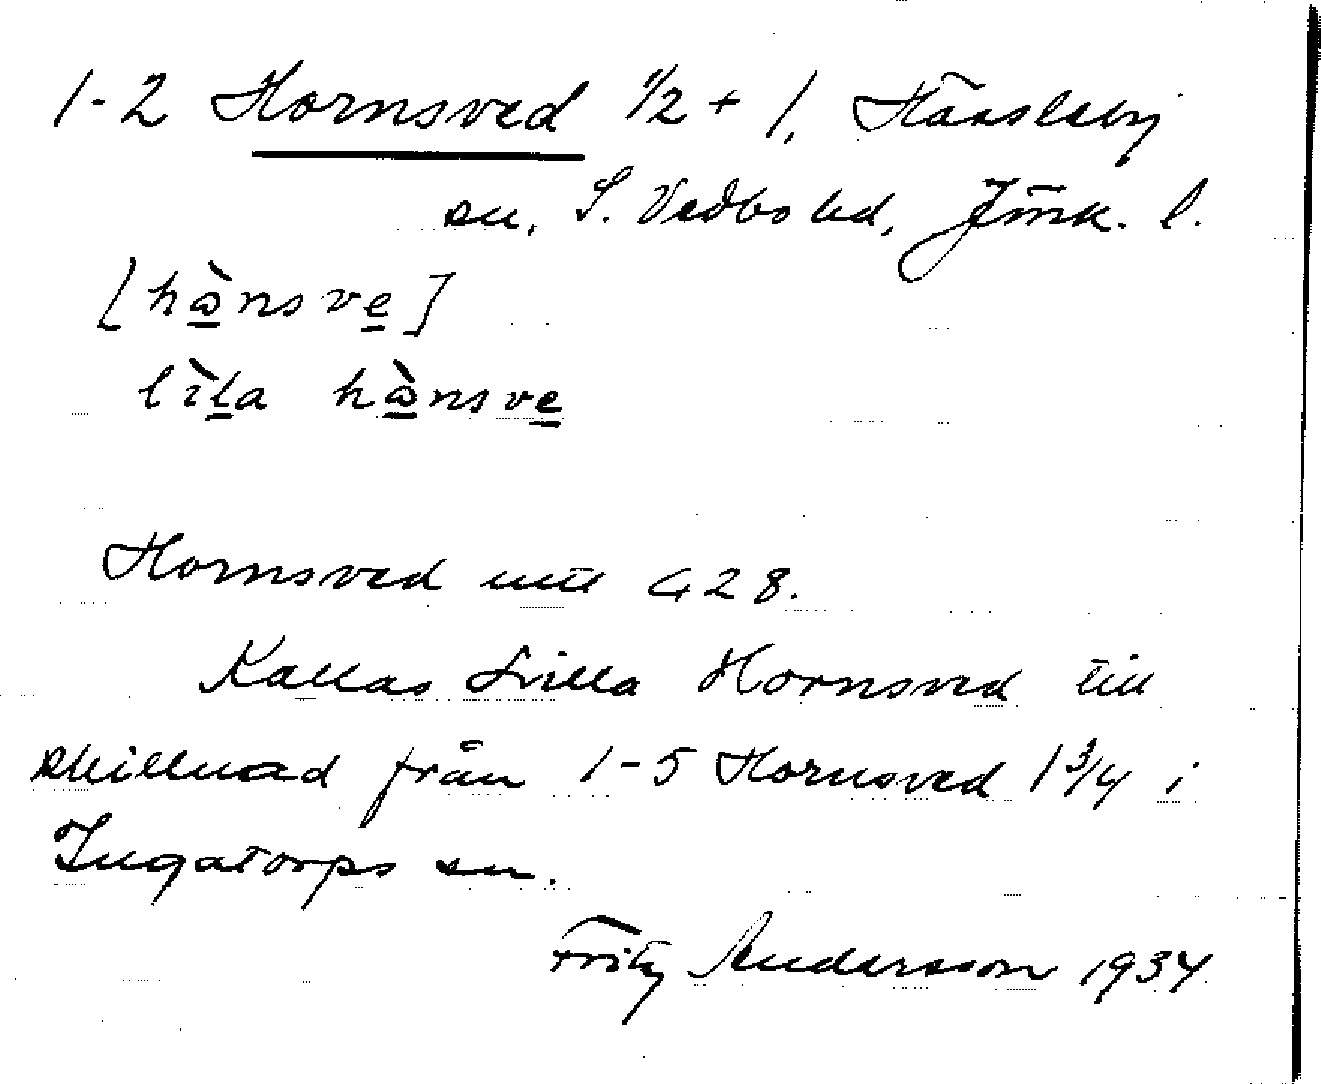 1-2 Hornsved 1/2 + 1, Hässleby
sn, S. Vedbo hd, Jönk. l.
[hὼnsve]
lìla hὼnsve
Hornsved mtl 428.
Kallas Lilla Hornsved till
skillnad från 1-5 Hornsved 1 3/4 i
Ingatorps sn.
Fritz Andersson 1934